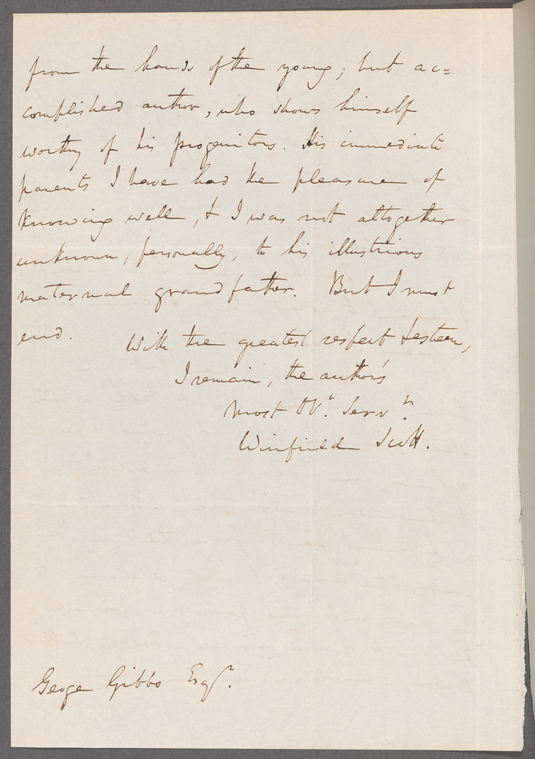 from the hands of the young; but ac=
complished author, who shows himself
worthy of his progenitors. His immediate
parents I have had the pleasure of
knowing well, & I was not altogether
unknown, personally, to his illustrious
maternal grandfather. But I must
end.
With the greatest respect & esteem,
I remain, the author's
most Ob.t Serv.t.
Winfield Scott.
George Gibbs Esq.r.